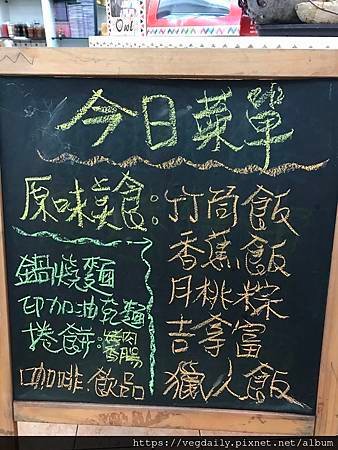 Owl
今日菜單
原味美食:竹筒飯
香蕉飯
月桃粽
吉拿富
獵人飯
鍋燒麵
印加油乾麵
捲餅:烤肉
香腸
咖啡.飲品
https://vegdaily.pixnet.net/album